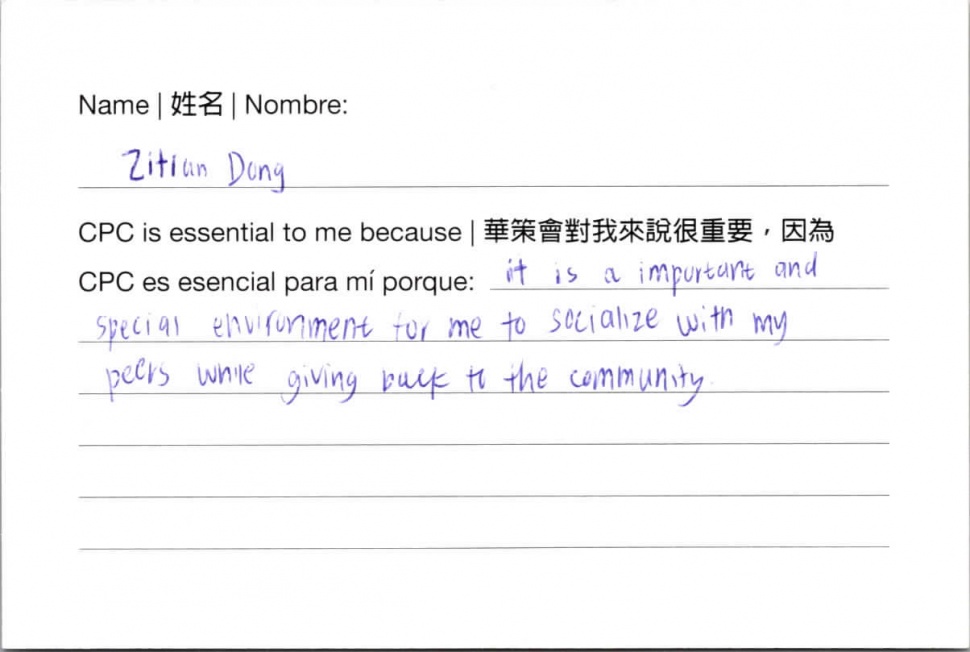 Name | 姓名 | Nombre:
Zitian Dong
CPC is essential to me because | 華策會對我來說很重要，因為
CPC es esencial para mí porque: it is a important and
special environment for me to socialize with my
peers while giving back to the community.